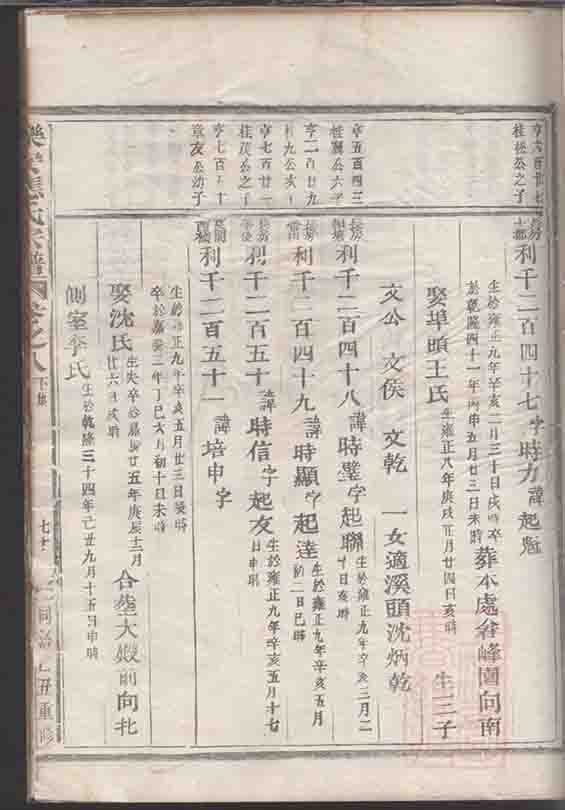 亨六百廿七
桂松公之子
利千二百四十七字時力諱起魁
生於雍正九年辛亥二月三十日戌時卒
於乾隆四十一年丙申五月廿三日未時
葬本處 峰園向南
娶埠頭王氏
生雍正八年庚戌正月廿四日亥時
生三子
文公 文侯 文乾 一女適溪頭沈炳乾
亨五百四三
桂襄公六子
利千二百四十八諱時鏧字起聯
生於雍正九年辛亥三月二
十日亥時
亨二百廿九
九公次子
利千二百四十九諱時顯字起達
生於雍正九年辛亥五月
初二日巳時
亨七百廿一
桂茂公之子
利千二百五十諱時信字起友
生於雍正九年辛亥五月十七
日申時
亨七百五十
章友公幼子
利千二百五十一諱培申字
生於雍正九年辛亥五月廿三日戌時
卒於嘉慶三年丁巳六月初十日未時
娶沈氏
生失卒於嘉慶廿五年庚辰十二月
廿六日戌時
合塟大嫂前向北
側室李氏
生於乾隆三十四年己丑九月十五日申時
樂安 氏宗譜 卷之八下集
同治乙丑重修